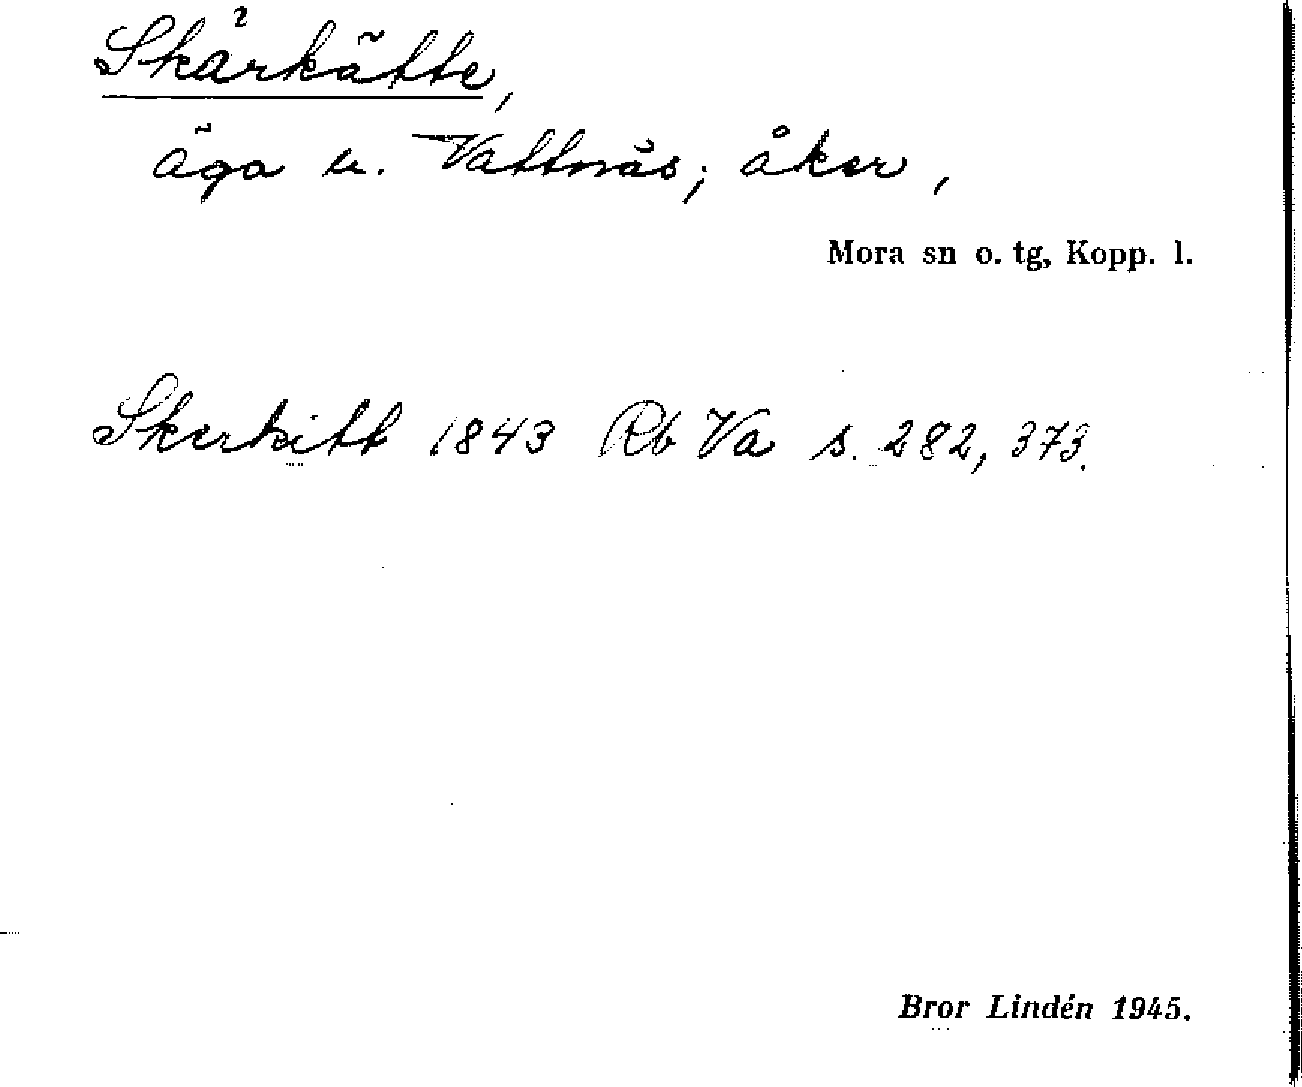 Skärkätte,
äga u. Vattnäs; åker,
Mora sn o. tg, Kopp. l.
Skerkitt 1843 Rb Va s. 282, 373.
Bror Lindén 1945.